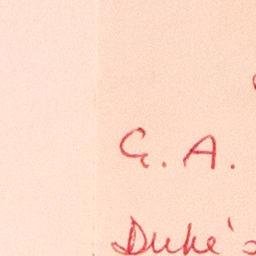 G. A.
Duke's